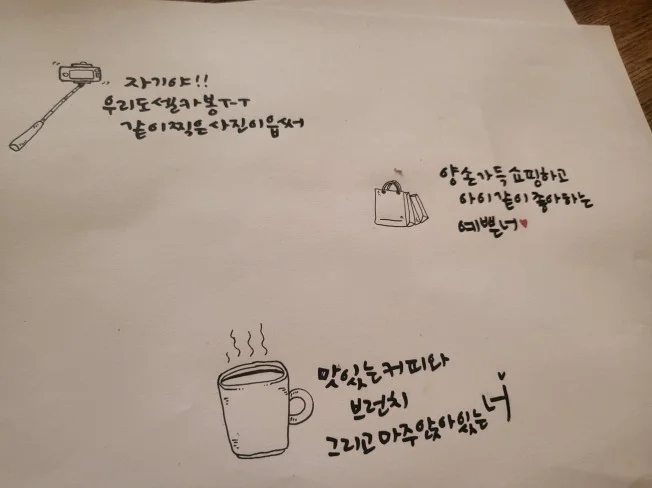 자기야!!
우리도 셀카봉ㅜ-ㅜ
같이 찍은 사진이 읍써
양손가득 쇼핑하고
아이같이 좋아하는
예쁜너♥
맛있는 커피와
브런치
그리고 마주앉아있는 너